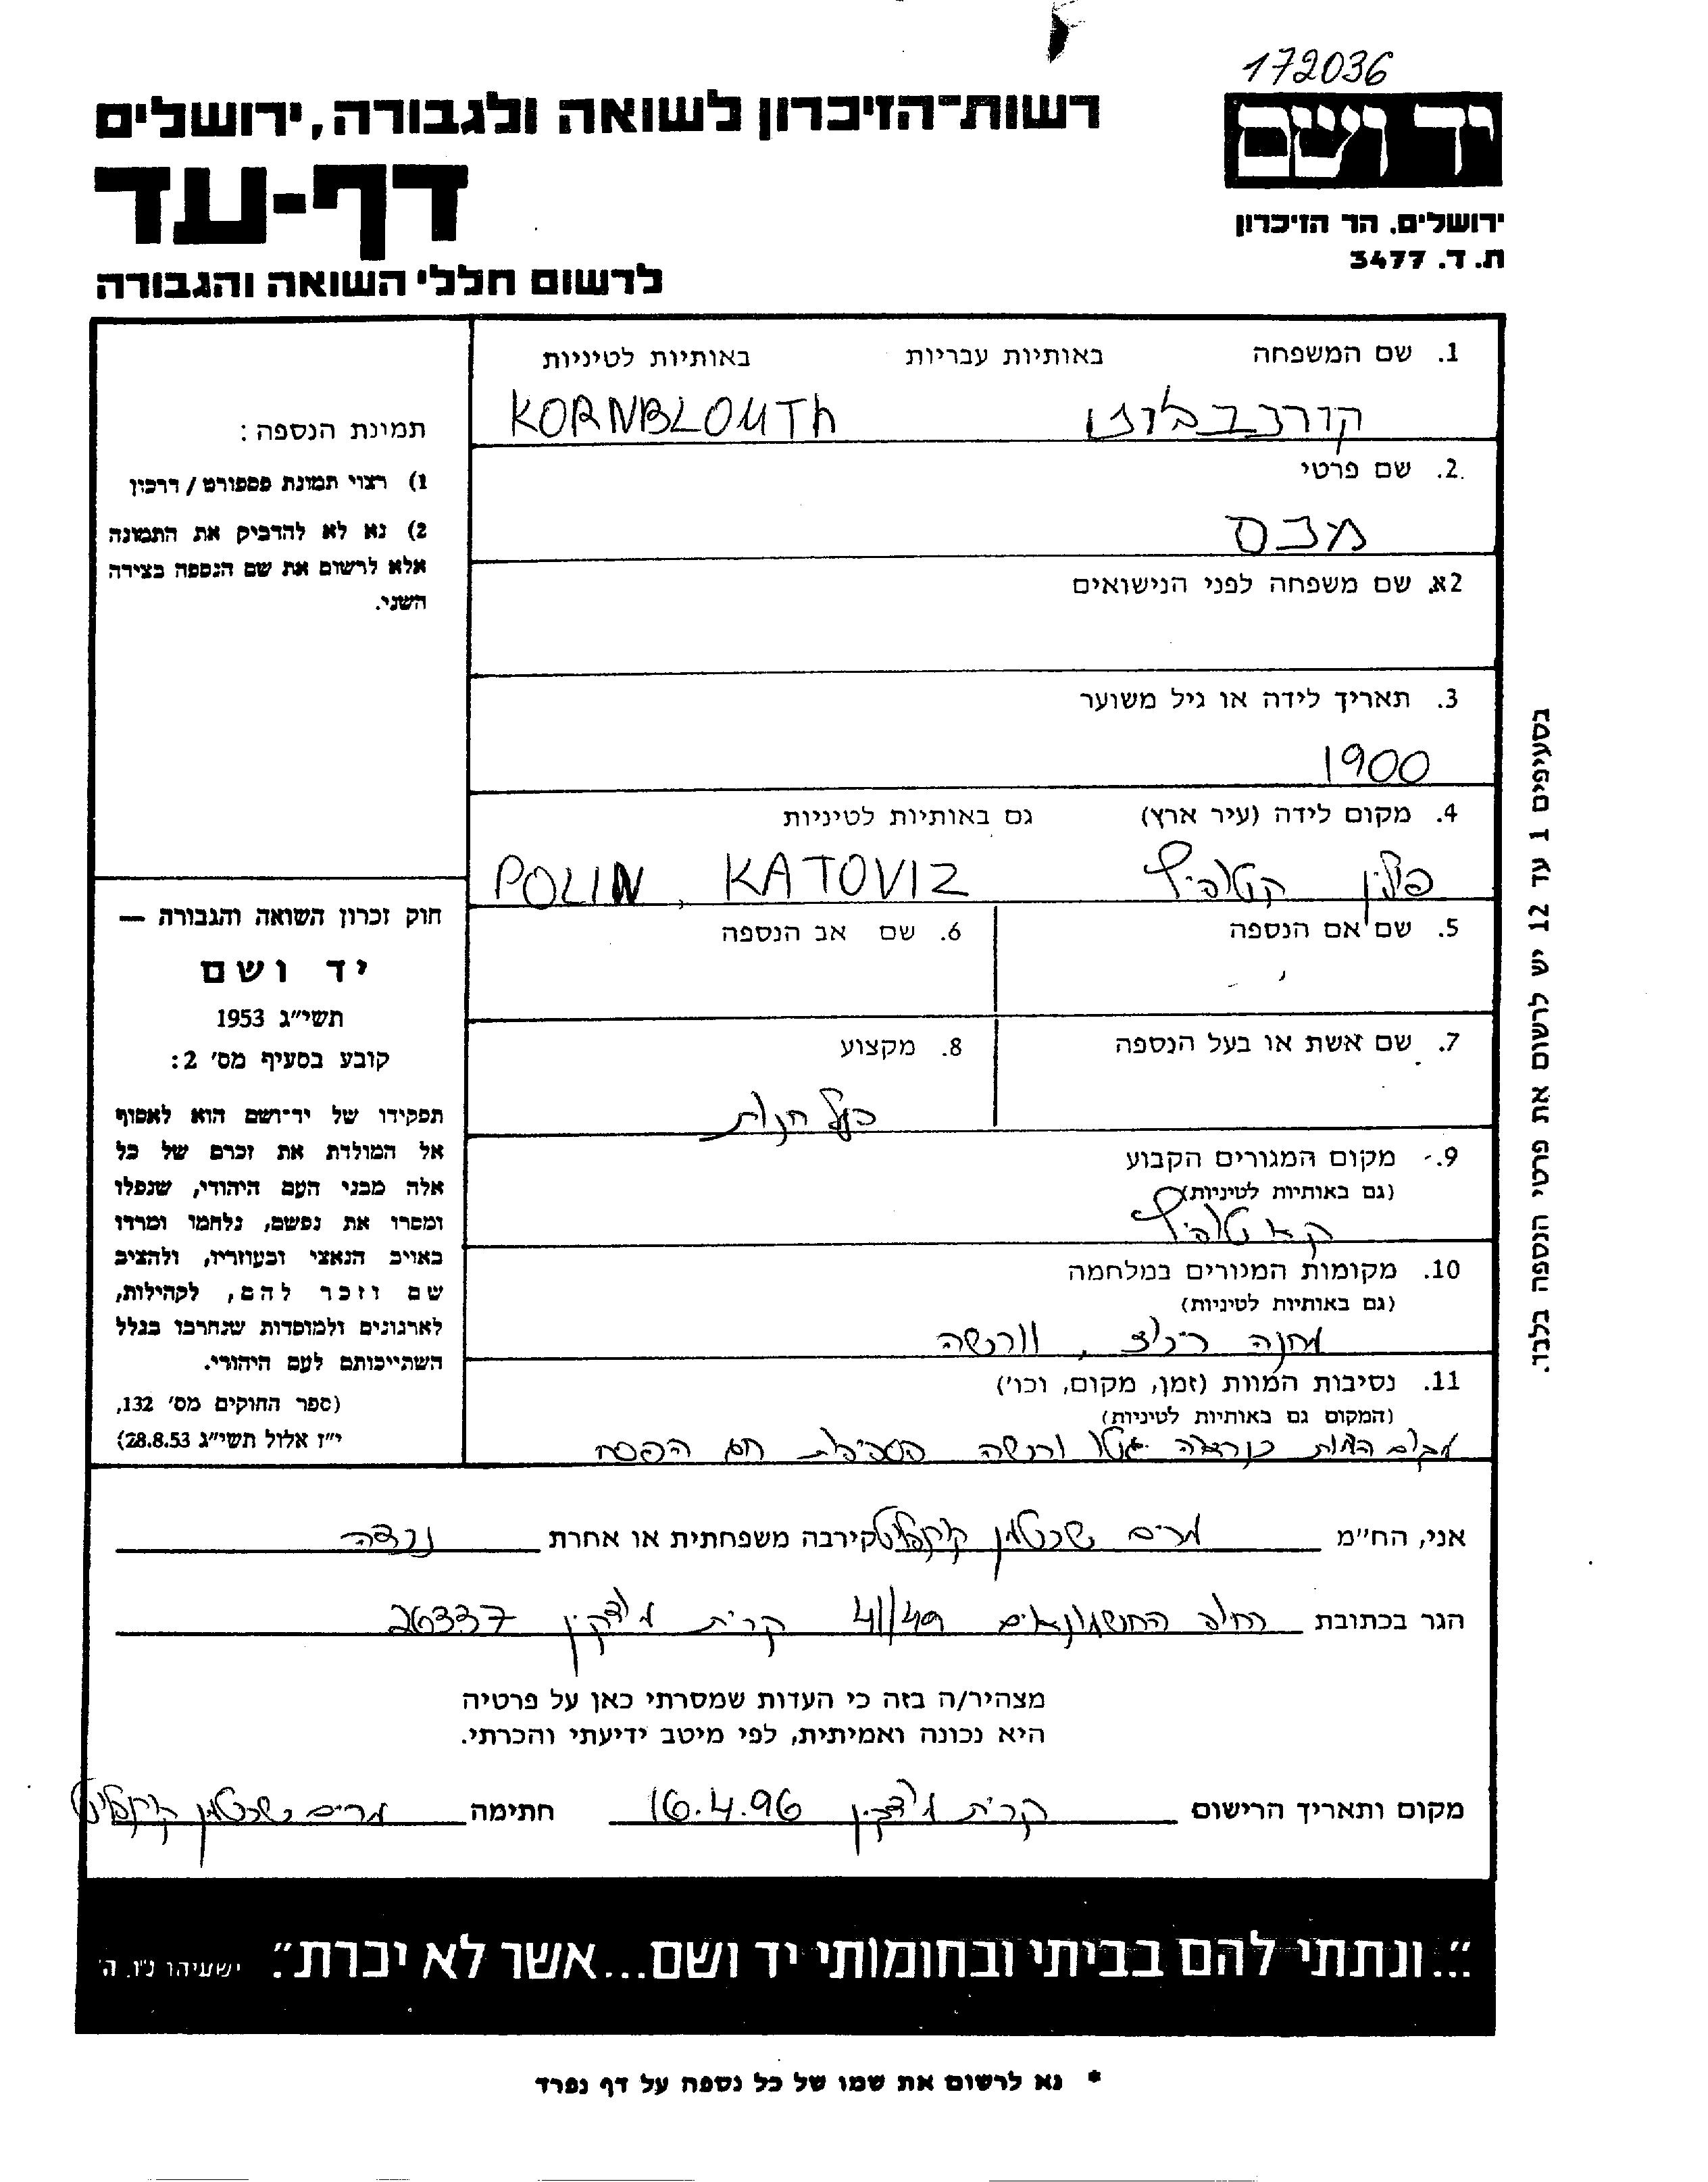 172036
יד ושם
רשות-הזיכרון לשואה ולגבורה, ירושלים
דף-עד
ירושלים. הר הזיכרון
ת. ד. 3477
לרשום חללי השואה והגבורה
1. שם המשפחה באותיות עבריות באותיות לטיניות
KORNBLOUTh
2. שם פרטי
מכס
2א. שם משפחה לפני הנישואים
3. תאריך לידה או גיל משוער
1900
4. מקום לידה (עיר ארץ) גם באותיות לטיניות
פולין קטוביץ POLIN, KATOVIZ
5. שם אם הנספה
6. שם אב הנספה
7. שם אשת או בעל הנספה
8. מקצוע
בעל חנות
9. מקום המגורים הקבוע
(גם באותיות לטיניות)
קאטוביץ
10. מקומות המגורים במלחמה
(גם באותיות לטיניות)
מחנה ריכוז, וורשה
11. נסיבות המוות (זמן, מקום, וכו')
(המקום גם באותיות לטיניות)
מקום המות וורשה חג הפסח
תמונת הנספה:
1) רצוי תמונת פספורט / דרכון
2) נא לא להדביק את התמונה
אלא לרשום את שם הנספה בצידה
השני.
חוק זכרון השואה והגבורה —
יד ושם
תשי"ג 1953
קובע בסעיף מס' 2:
תפקידו של יד-ושם הוא לאסוף
אל המולדת את זכרם של כל
אלה מבני העם היהודי, שנפלו
ומסרו את נפשם, נלחמו ומרדו
באויב הנאצי ובעוזריו, ולהציב
שם וזכר להם, לקהילות,
לארגונים ולמוסדות שנחרבו בגלל
השתייכותם לעם היהודי.
(ספר החוקים מס' 132,
י"ז אלול תשי"ג 28.8.53)
בסעיפים 1 עד 12 יש לרשום את פרטי הנספה בלבד.
אני, הח"מ מרים קירבה משפחתית או אחרת נכדה
הגר בכתובת רחוב החשמונאים 41/49 קרית מוצקין 26337
מצהיר/ה בזה כי העדות שמסרתי כאן על פרטיה
היא נכונה ואמיתית, לפי מיטב ידיעתי והכרתי.
מקום ותאריך הרישום קרית מוצקין 16.4.96 חתימה מרים
"...ונתתי להם בביתי ובחומותי יד ושם...אשר לא יכרת". ישעיהו נ"ו, ה'
* נא לרשום את שמו של כל נספה על דף נפרד